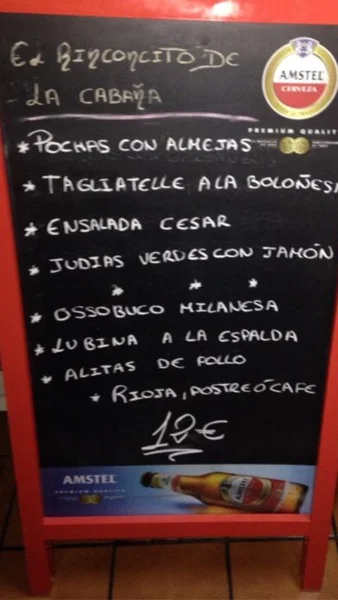 El Rinconcito de
La Cabaña
AMSTEL
CERVEZA
PREMIUM QUALITY
* POCHAS CON ALMEJAS
* TAGLIATELLE A LA BOLOÑESA
* ENSALADA CESAR
* JUDIAS VERDES CON JAMÓN
* * *
* OSSOBUCO MILANESA
* LUBINA A LA ESPALDA
* ALITAS DE POLLO
* RIOJA, POSTRE Ó CAFE
12€
AMSTEL
PREMIUM QUALITY
AMSTEL